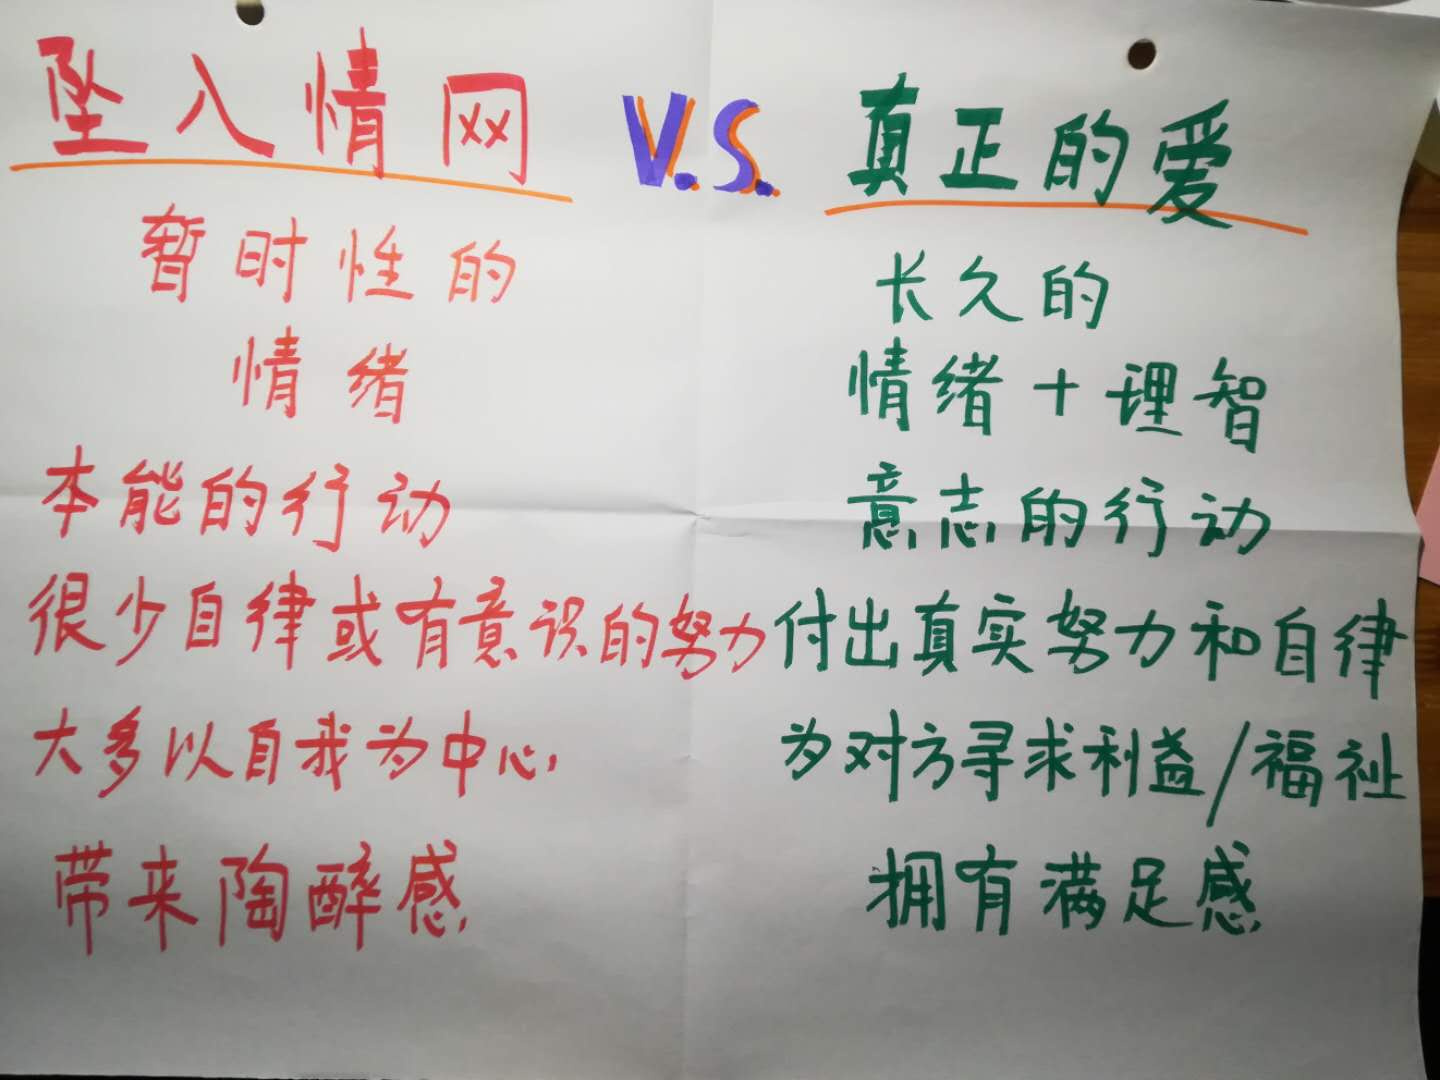 坠入情网 V.S. 真正的爱
暂时性的
情绪
本能的行动
很少自律或有意识的努力
大多以自我为中心
带来陶醉感
长久的
情绪+理智
意志的行动
付出真实努力和自律
为对方寻求利益/福祉
拥有满足感